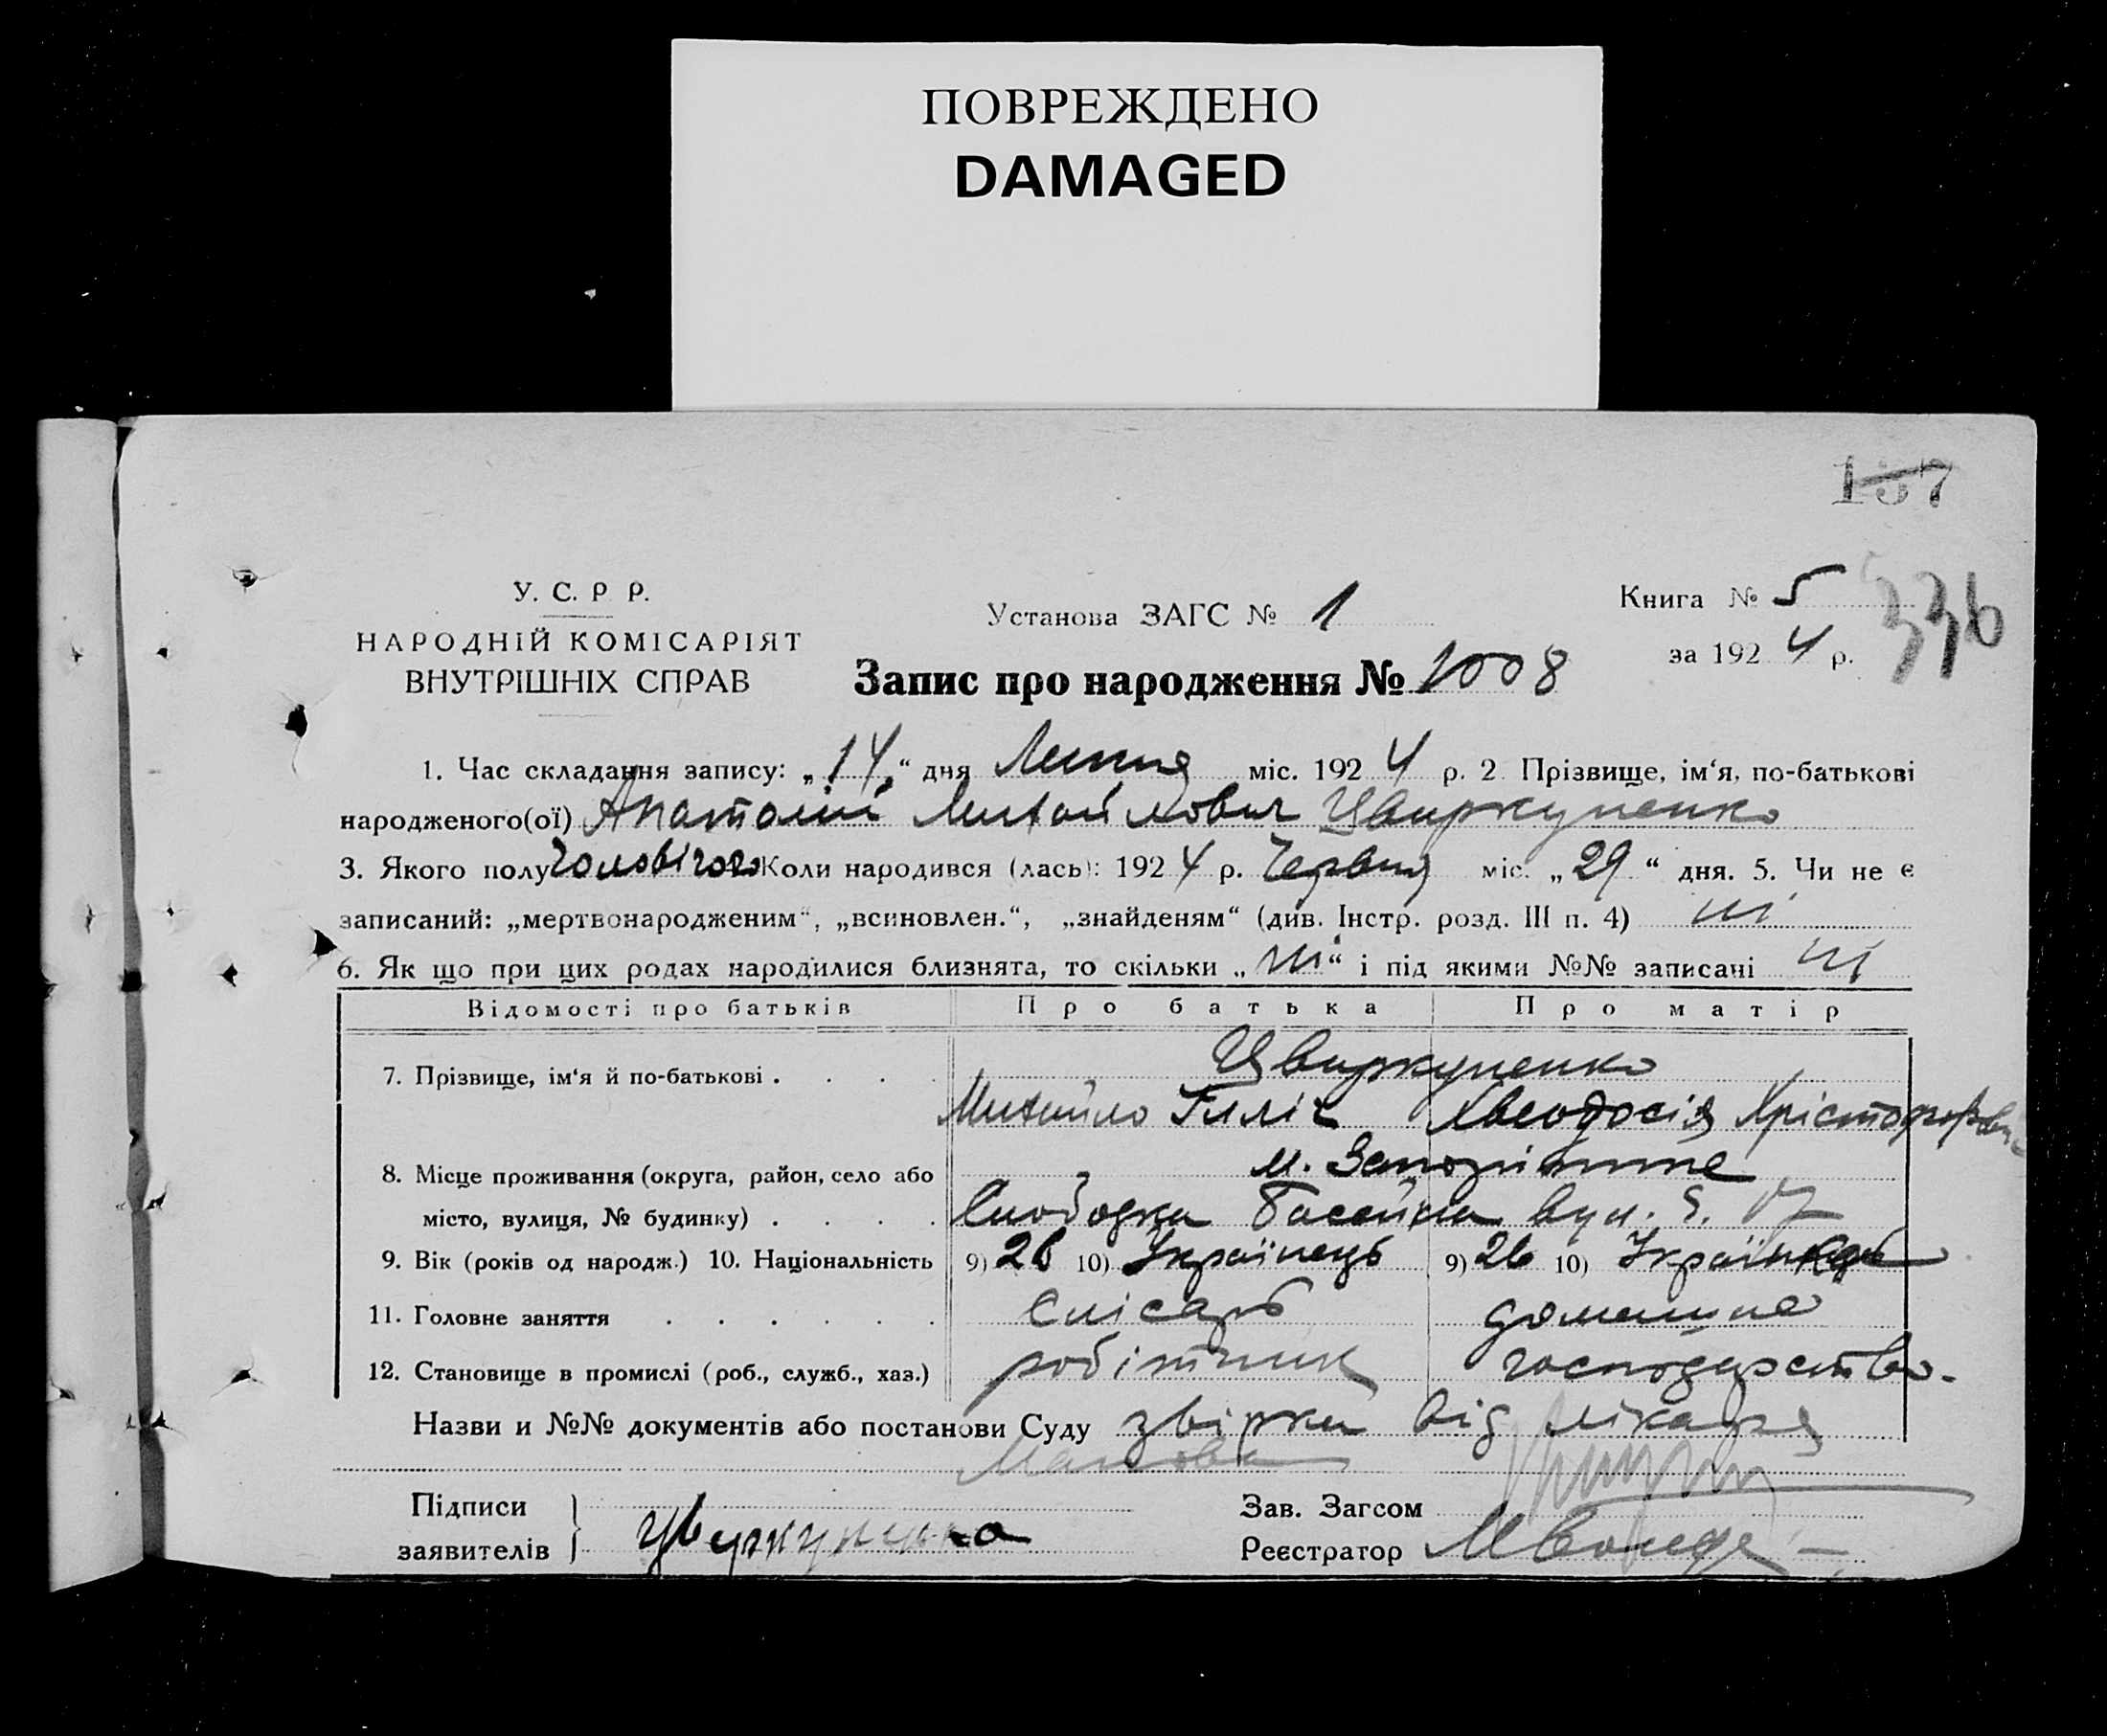 ПОВРЕЖДЕНО
DAMAGED
137
У. С. Р Р.
НАРОДНІЙ КОМІСАРІЯТ
ВНУТРІШНІХ СПРАВ
Установа ЗАГС № 1
Книга № 5
336
за 1924 р.
Запис про народження № 1008
1. Час складання запису: „14“ дня Липня міс. 1924 р. 2. Прізвище, ім‘я, по-батькові
народженого(ої) Анатолій Михайлович Цвиркуненко
3. Якого полу чоловічого Коли народився (лась): 1924 р. Червня міс. „29“ дня. 5. Чи не є
записаний: „мертвонародженим“, „всиновлен.“, „знайденям“ (див. Інстр. розд. III п. 4) ні
6. Як що при цих родах народилися близнята, то скільки „ні“ і під якими №№ записані ні
Відомості про батьків Про батька Про матір
7. Прізвище, ім‘я й по-батькові . . . . Цвиркуненко
Михайло Ілліч Хвеодосія Хрістофоровна
8. Місце проживання (округа, район, село або м. Запоріжжє
місто, вулиця, № будинку) . . . . Слободка Басейна вул.
9. Вік (років од народж.) 10. Національність 9) 26 10) Українець 9) 26 10) Українка
11. Головне заняття . . . . . . Слісарь домашнє
12. Становище в промислі (роб., служб., хаз.) робітник господарство.
Назви и №№ документів або постанови Суду звірка від лікаря
Підписи
заявителів
Цвуркунка
Зав. Загсом
Реєстратор